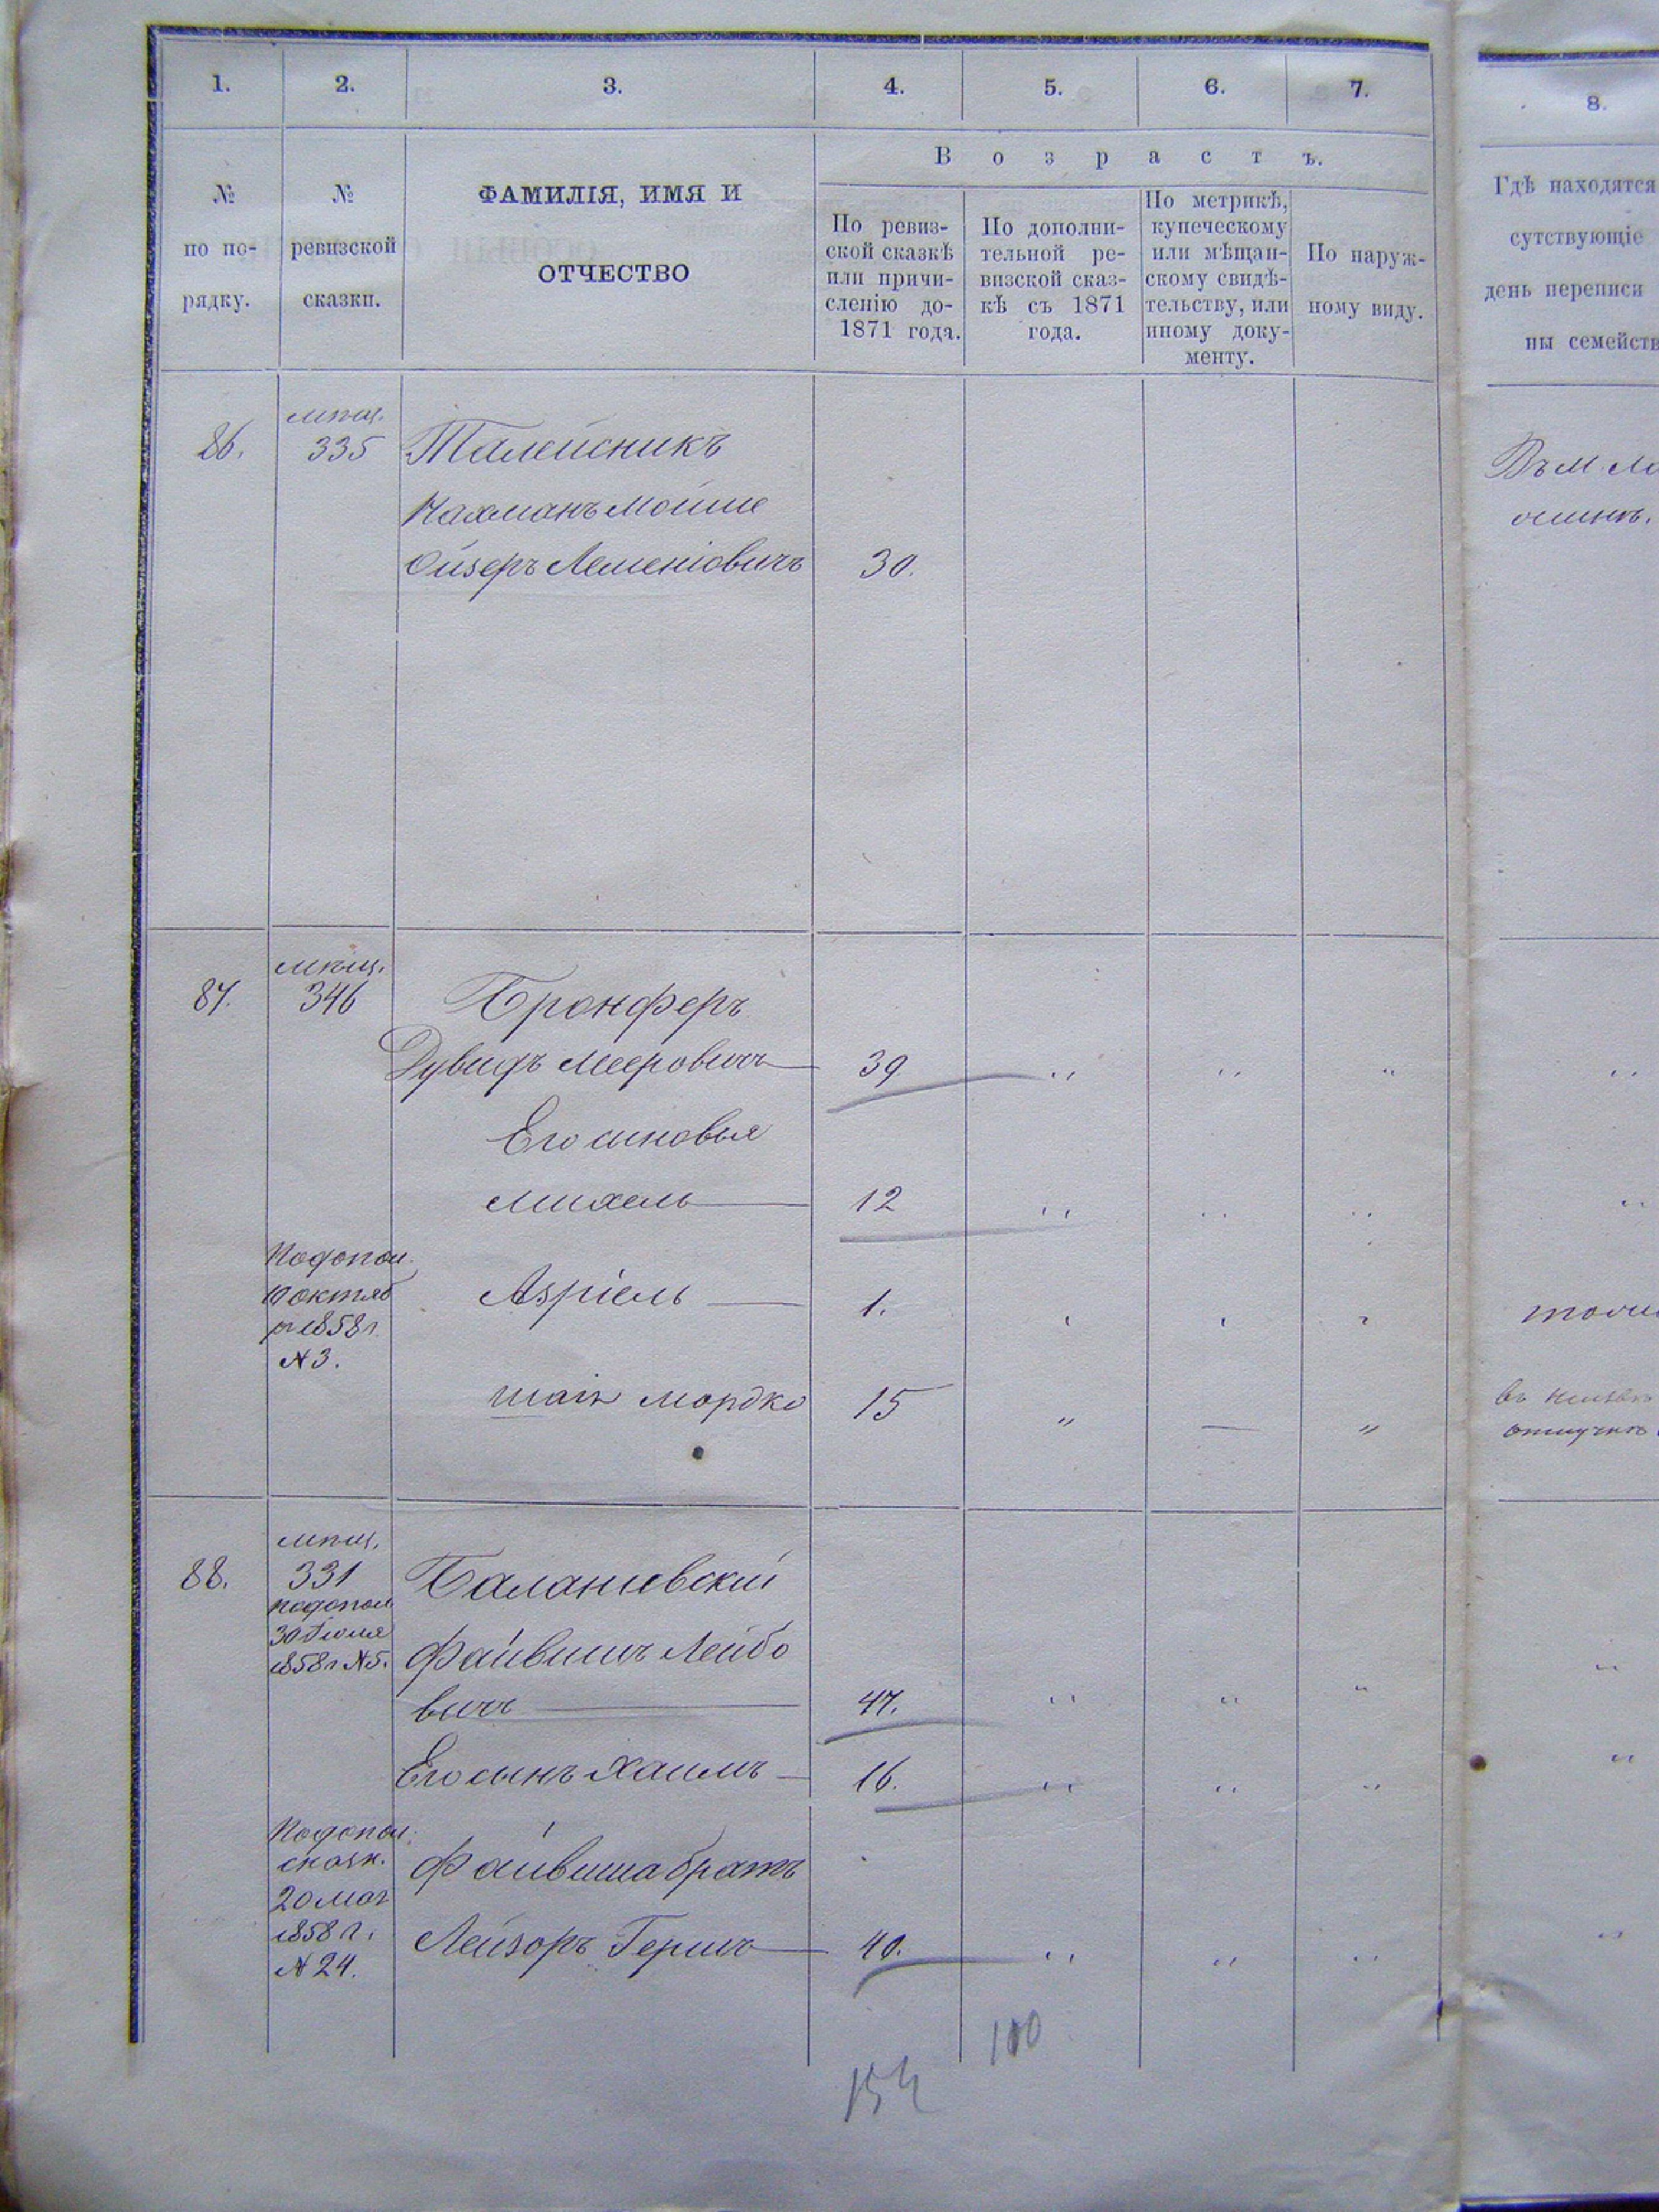 1. 2. 3. 4. 5. 6. 7. 8.
В о з р а с т ъ.
№ по по-рядку.
№ ревизской сказки.
ФАМИЛІЯ, ИМЯ И
ОТЧЕСТВО
По ревиз-
ской сказкѣ
или причи-
сленію до-
1871 года.
По дополни-
тельной ре-
визской сказ-
кѣ съ 1871
года.
По метрикѣ,
купеческому
или мѣщан-
скому свидѣ-
тельству, или
иному доку-
менту.
По наруж-
ному виду.
Гдѣ находятся
сутствующіе
день переписи
ны семейств
мѣщ.
86. 335 Талейсникъ
Нахманъ Мойше
Ойзеръ 30.
Въ м.
мѣщ.
87. 346 Бронферъ
Дувидъ Мееровичъ 39 " " " "
Его сыновья
Михель 12 " " " "
Подопол.
10 октяб
ря 1858 г.
N 3.
Азріель 1. " " "
Шаія Мордко 15 " — "
въ
отлучкѣ
мѣщ.
88. 331 Балановскій
подопол
30 Іюля
1858 г N 5.
Файвишъ Лейбо
вичъ 47. " " " "
Его сынъ Хаимъ 16. " " " "
Подопол.
сказк.
20 мая
1858 г.
N 24.
Файвиша братъ
Лейзоръ Гершъ 40. " " " "
100
154